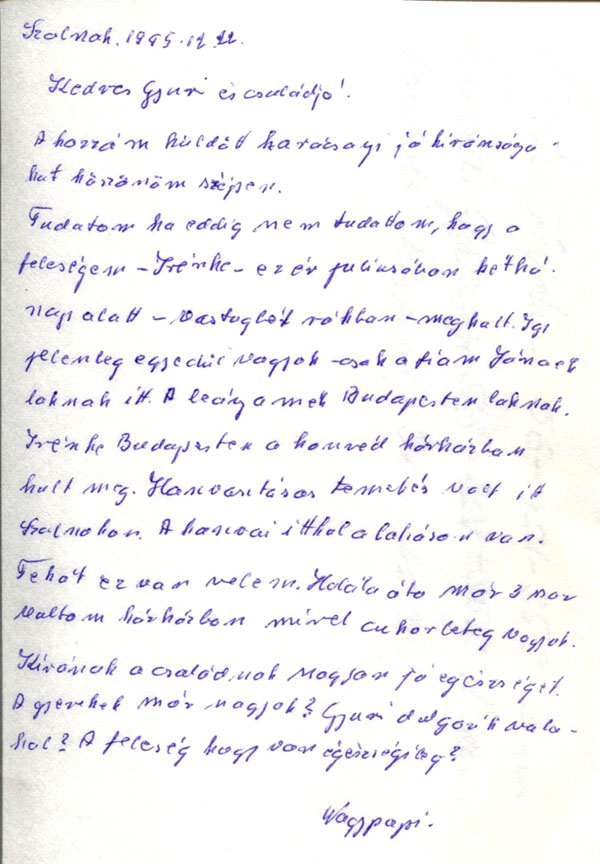 Szolnok. 1995.12.22.
Kedves Gyuri és családja!
A hozzám küldött karácsonyi jó kívánsága-
kat köszönöm szépen.
Tudatom ha eddig nem tudattom, hogy a
feleségem - Irénke - ez év juliusában két hó-
nap alatt - vastagbél rákban - meghalt. Igy
jelenleg egyedül vagyok - csak a fiam Jánoék
laknak itt. A leányamék Budapesten laknak.
Irénke Budapesten a honvéd kórházban
halt meg. Hamvasztásos temetés volt itt
Szolnokon. A hamvai itthol a lakáson van.
Tehát ez van velem. Halála óta már 3 szor
voltam kórházban mivel cukorbeteg vagyok.
Kívánok a családnak nagyon jó egészséget.
A gyerekek már nagyok? Gyuri dolgozik vala-
hol? A feleség hogy van egészségileg?
Nagypapi.